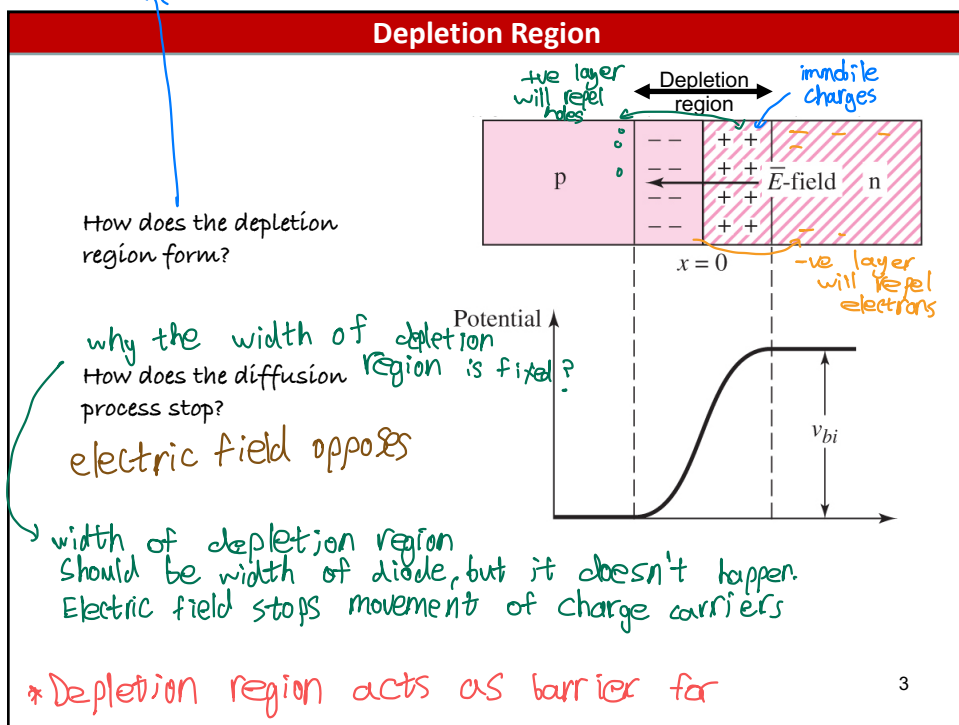 Depletion Region
+ve layer
will repel
holes
Depletion
region
immobile
charges
p
− −
− −
− −
− −
+ +
+ +
+ +
+ +
E-field
n
x = 0
-ve layer
will repel
electrons
How does the depletion
region form?
why the width of depletion
region is fixed?
How does the diffusion
process stop?
electric field opposes
Potential
v_bi
width of depletion region
should be width of diode, but it doesn't happen.
Electric field stops movement of charge carriers
* Depletion region acts as barrier for
3